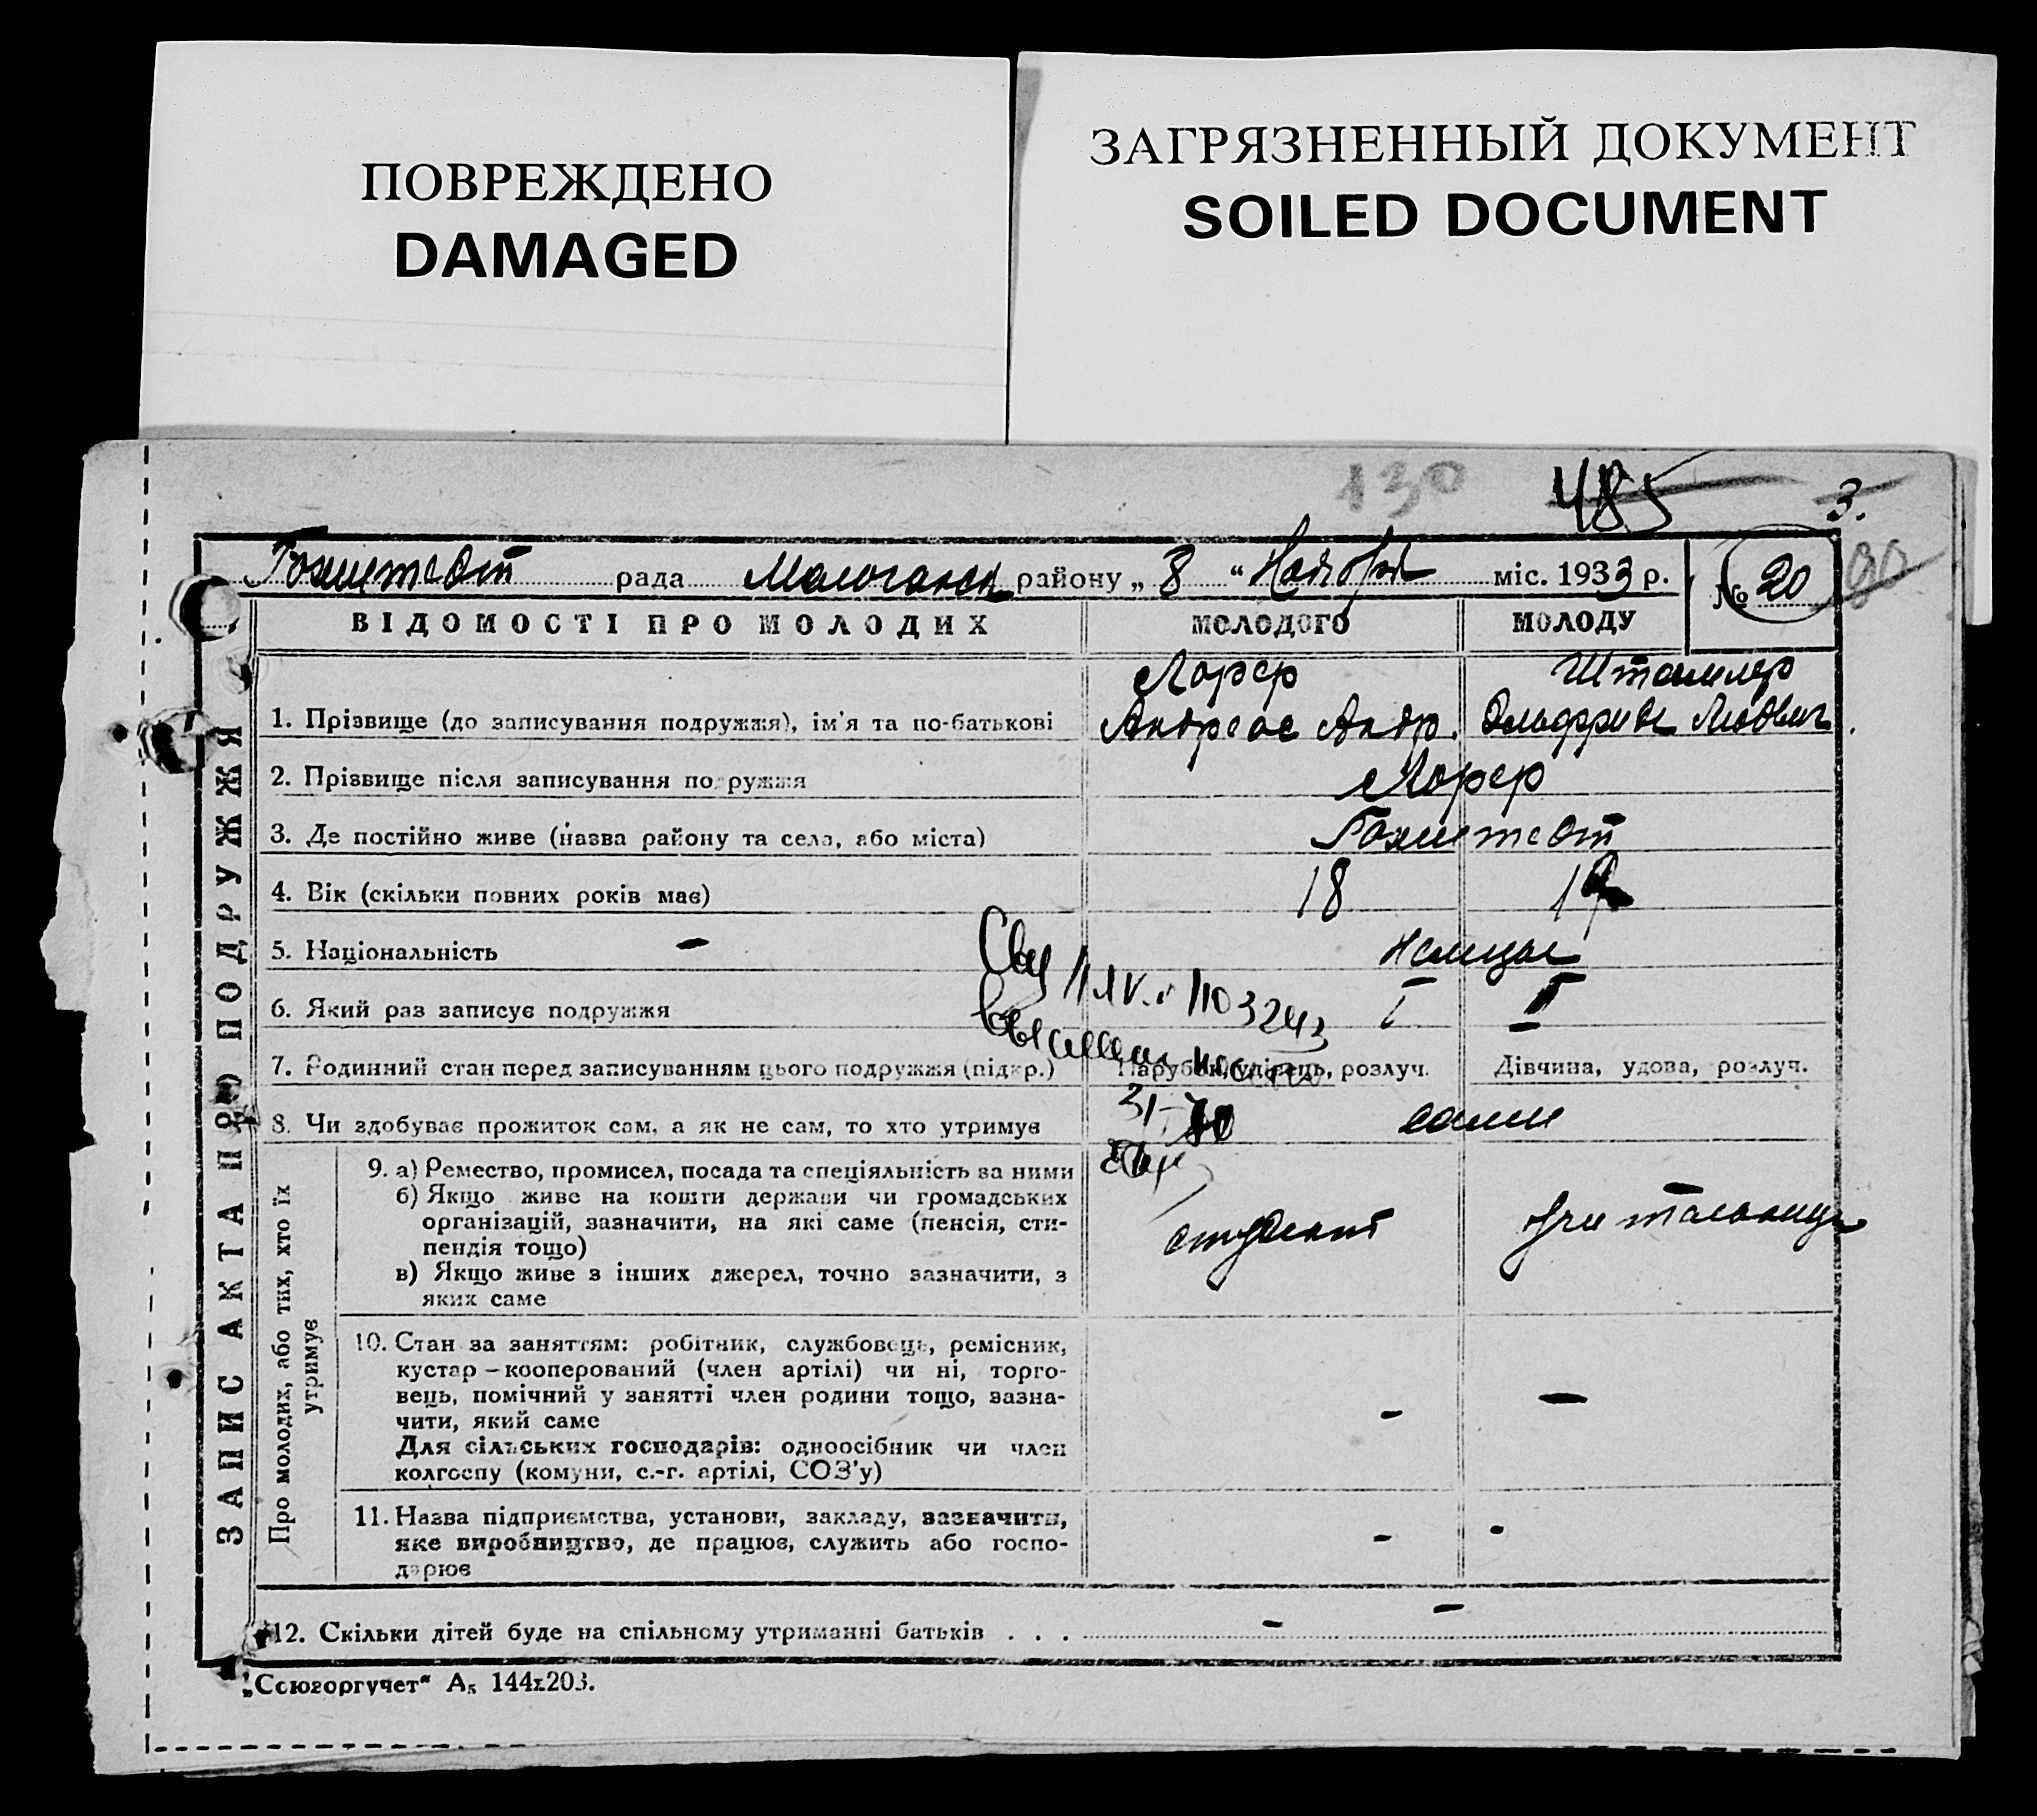 ПОВРЕЖДЕНО
DAMAGED
ЗАГРЯЗНЕННЫЙ ДОКУМЕНТ
SOILED DOCUMENT
130 485 3.
Гохштедт рада Молочанск району „ 8 “ Ноября міс. 1933 р. № 20
ВІДОМОСТІ ПРО МОЛОДИХ МОЛОДОГО МОЛОДУ
ЗАПИС АКТА ПРО ПОДРУЖЖЯ
Лорер Штаммлер
1. Прізвище (до записування подружжя), ім'я та по-батькові Андреас Андр. Эльфриде Людвиг.
2. Прізвище після записування подружжя Лорер
3. Де постійно живе (назва району та села, або міста) Гохштедт
4. Вік (скільки повних років має) 18
5. Національність - немцы
6. Який раз записує подружжя I I
7. Родинний стан перед записуванням цього подружжя (підкр.) Парубок, удівець, розлуч. Дівчина, удова, розлуч.
8. Чи здобуває прожиток сам, а як не сам, то хто утримує сами
Про молодих, або тих, хто їх
утримує
9. а) Ремество, промисел, посада та спеціяльність за ними
б) Якщо живе на кошти держави чи громадських
організацій, зазначити, на які саме (пенсія, сти-
пендія тощо) студент учительница
в) Якщо живе з інших джерел, точно зазначити, з
яких саме
10. Стан за заняттям: робітник, службовець, ремісник,
кустар – кооперований (член артілі) чи ні, торго-
вець, помічний у занятті член родини тощо, зазна-
чити, який саме - -
Для сільських господарів: одноосібник чи член
колгоспу (комуни, с.-г. артілі, СОЗ'у)
11. Назва підприємства, установи, закладу, зазначити,
яке виробництво, де працює, служить або госпо- - -
дарює
12. Скільки дітей буде на спільному утриманні батьків . . . - -
„Союзоргучет“ А₅ 144х203.